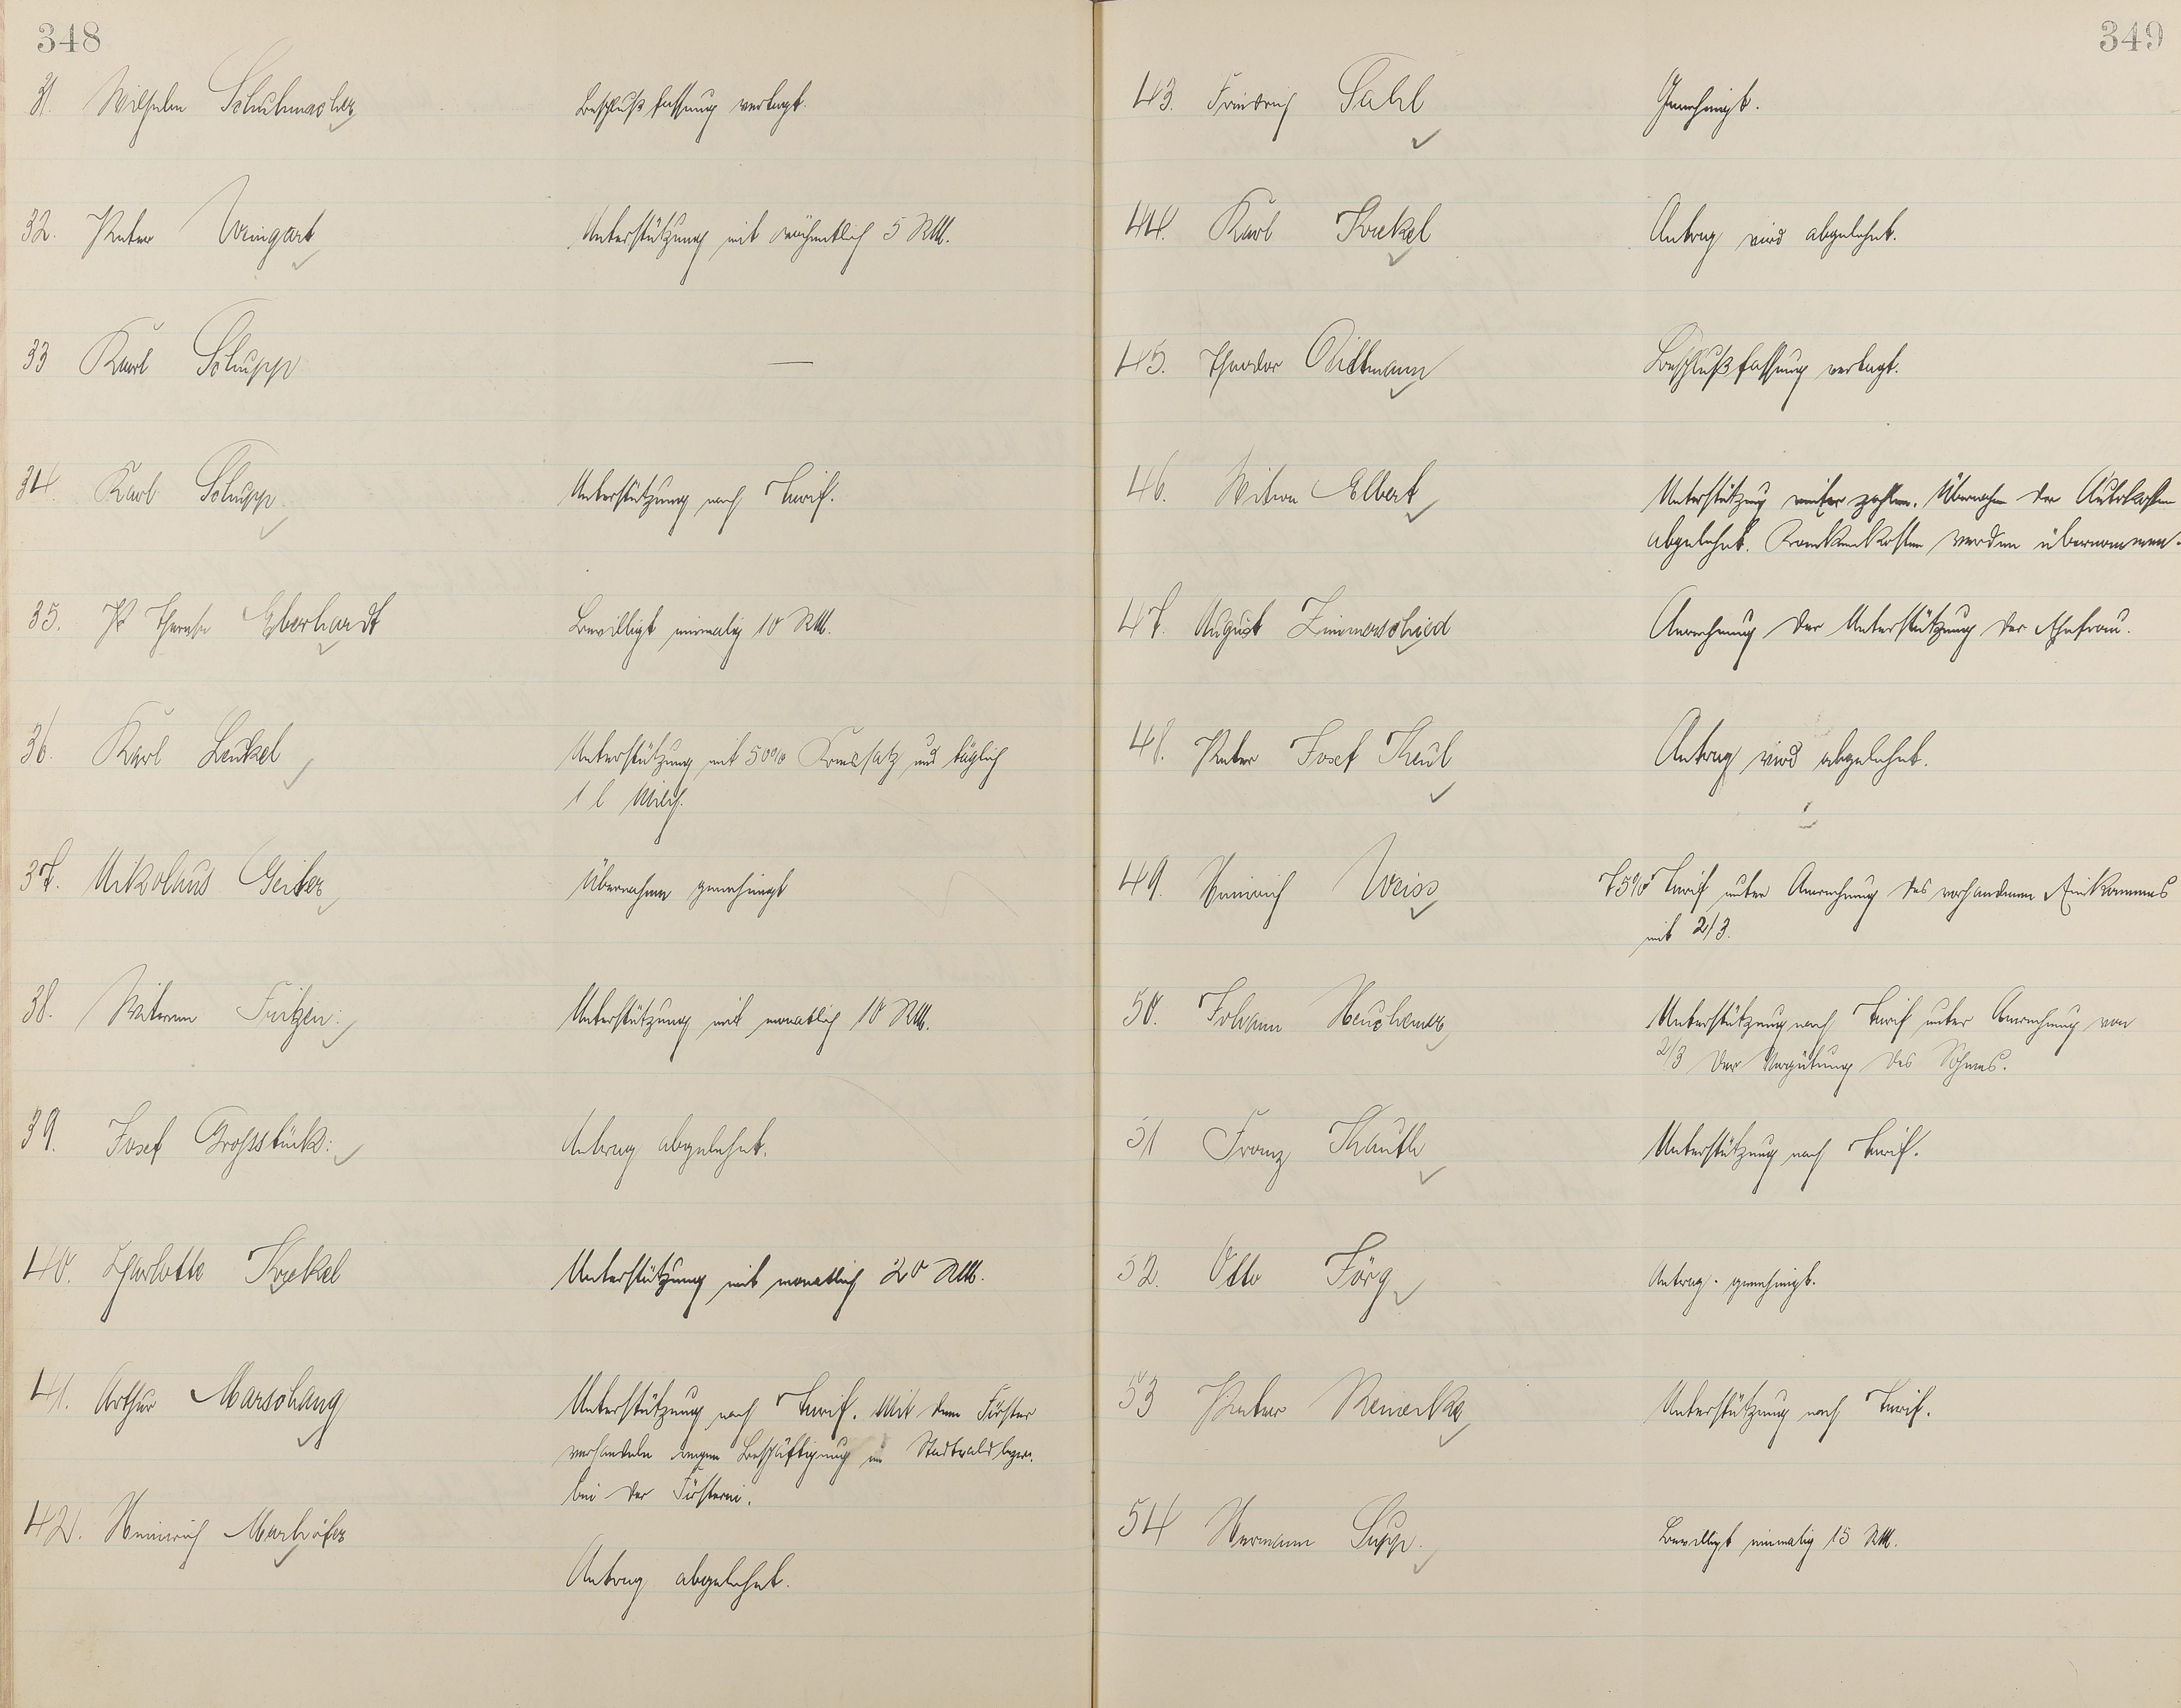 348
31. Wilhelm Schuhmacher Beschlußfassung vertagt.
32. Peter Weingart Unterstützung mit wöchentlich 5 RM.
33 Karl Schupp —
34. Karl Schupp. Unterstützung nach Tarif.
35. Therese Eberhardt Bewilligt einmalig 10 RM.
36. Karl Leukel Unterstützung mit 50% Kreissatz und täglich
1 l Milch.
37. Nikolaus Geiter Übernahme genehmigt
38. Witwe Fritzen: Unterstützung mit monatlich 10 RM.
39. Josef Grossstück: Antrag abgelehnt.
40. Charlotte Krekel Unterstützung mit monatlich 20 RM.
41. Arthur Marschang Unterstützung nach Tarif. Mit dem Förster
verhandeln wegen Beschäftigung im Stadtwald bezw.
bei der Försterei.
42. Heinrich Marhöfer
Antrag abgelehnt.
349
43. Friedrich Sahl Genehmigt.
44. Karl Krekel Antrag wird abgelehnt.
45. Theodor Dittmann Beschlußfassung vertagt.
46. Witwe Elbert Unterstützung weiter zahlen. Übernahme der Autokosten
abgelehnt. Krankenkosten werden übernommen.
47. August Zimmerschied Anrechnung der Unterstützung der Ehefrau.
48. Peter Josef Theul Antrag wird abgelehnt.
49. Heinrich Weiss 75% Tarif unter Anrechnung des vorhandenen Einkommens
mit 2/3.
50. Johann Heuchemer Unterstützung nach Tarif unter Anrechnung von
2/3 der Vergütung des Sohnes.
51 Franz Kauth Unterstützung nach Tarif.
52. Otto Förg Antrag. genehmigt.
53 Peter Reinecke Unterstützung nach Tarif.
54 Hermann Supp. Bewilligt einmalig 15 RM.